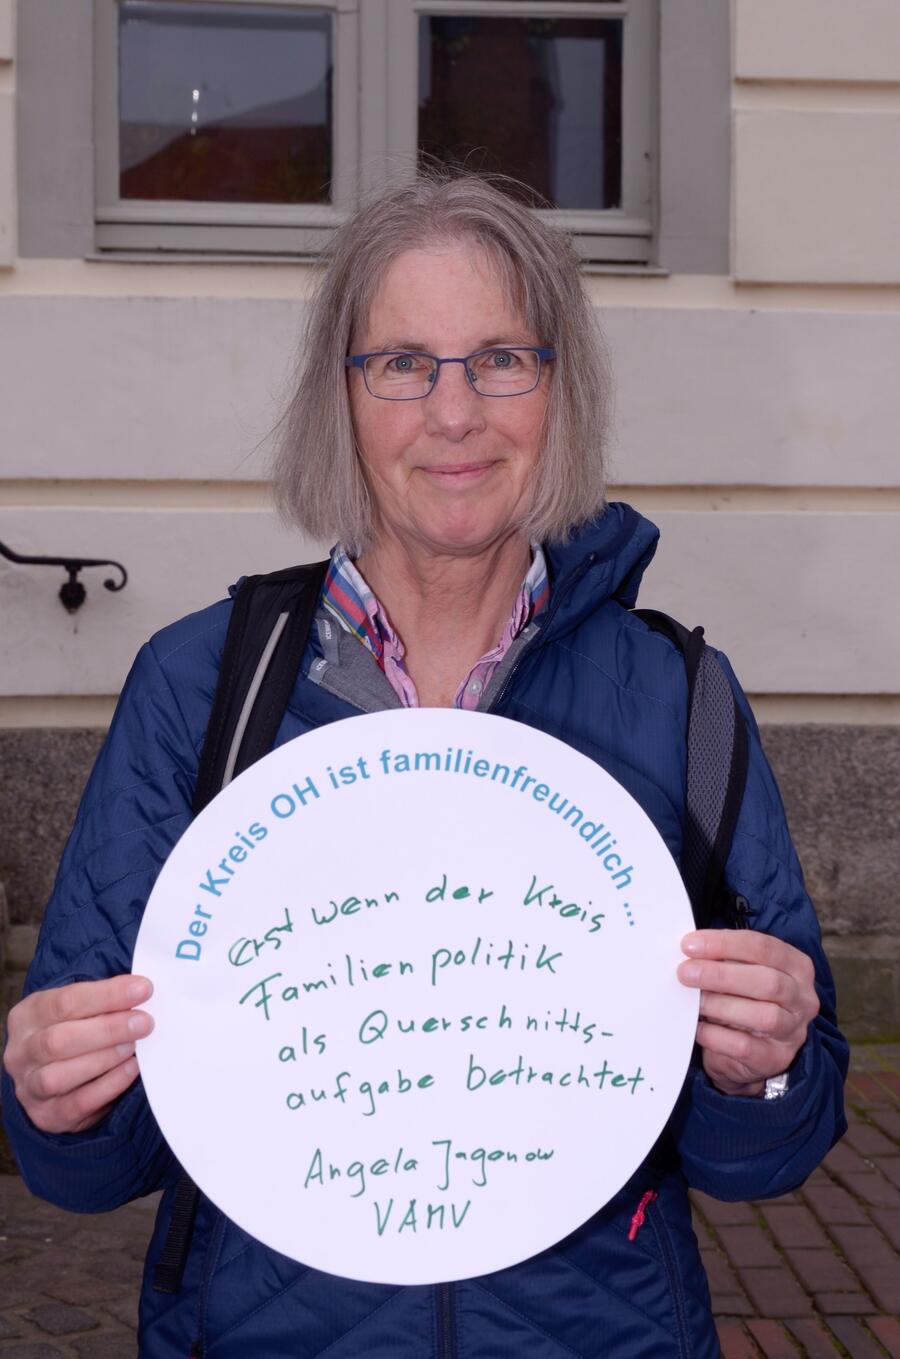 Der Kreis OH ist familienfreundlich ...
erst wenn der Kreis
Familienpolitik
als Querschnitts-
aufgabe betrachtet.
Angela Jagenow
VAMV